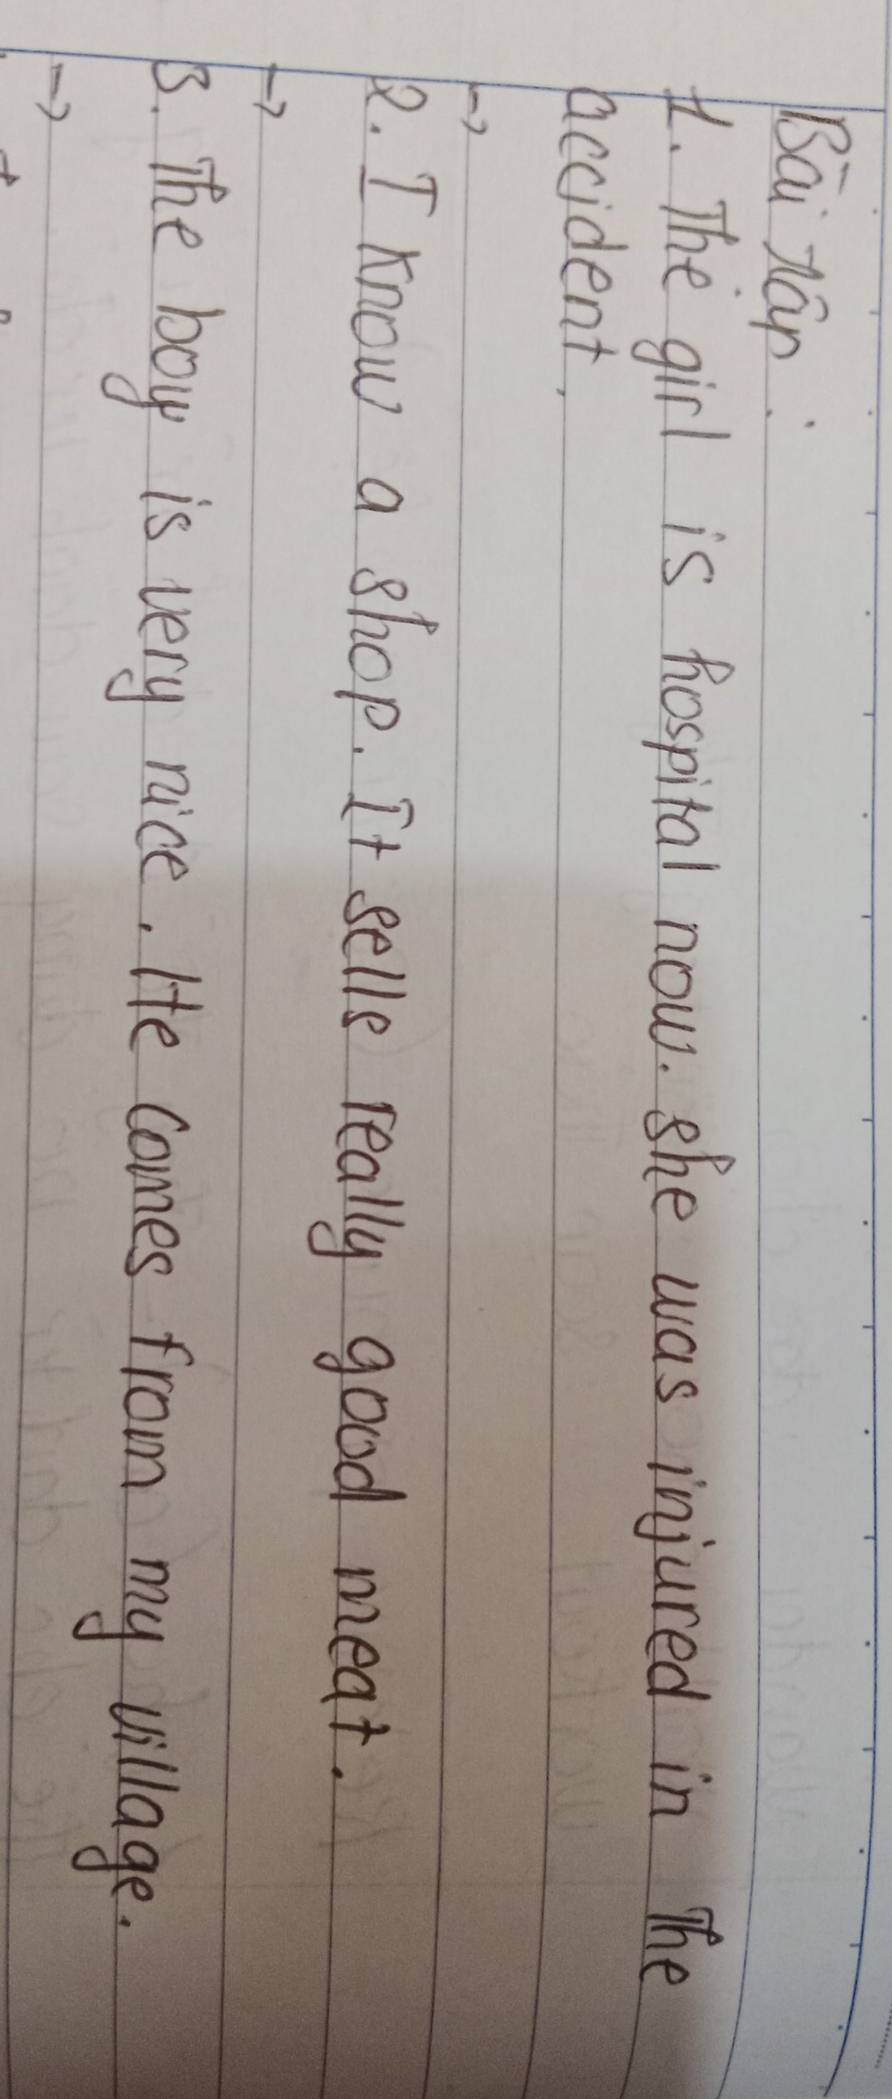 Bài tập:
1. The girl is hospital now. She was injured in the
accident.
→
2. I know a shop. It sells really good meat.
→
3. The boy is very nice. He comes from my village.
→